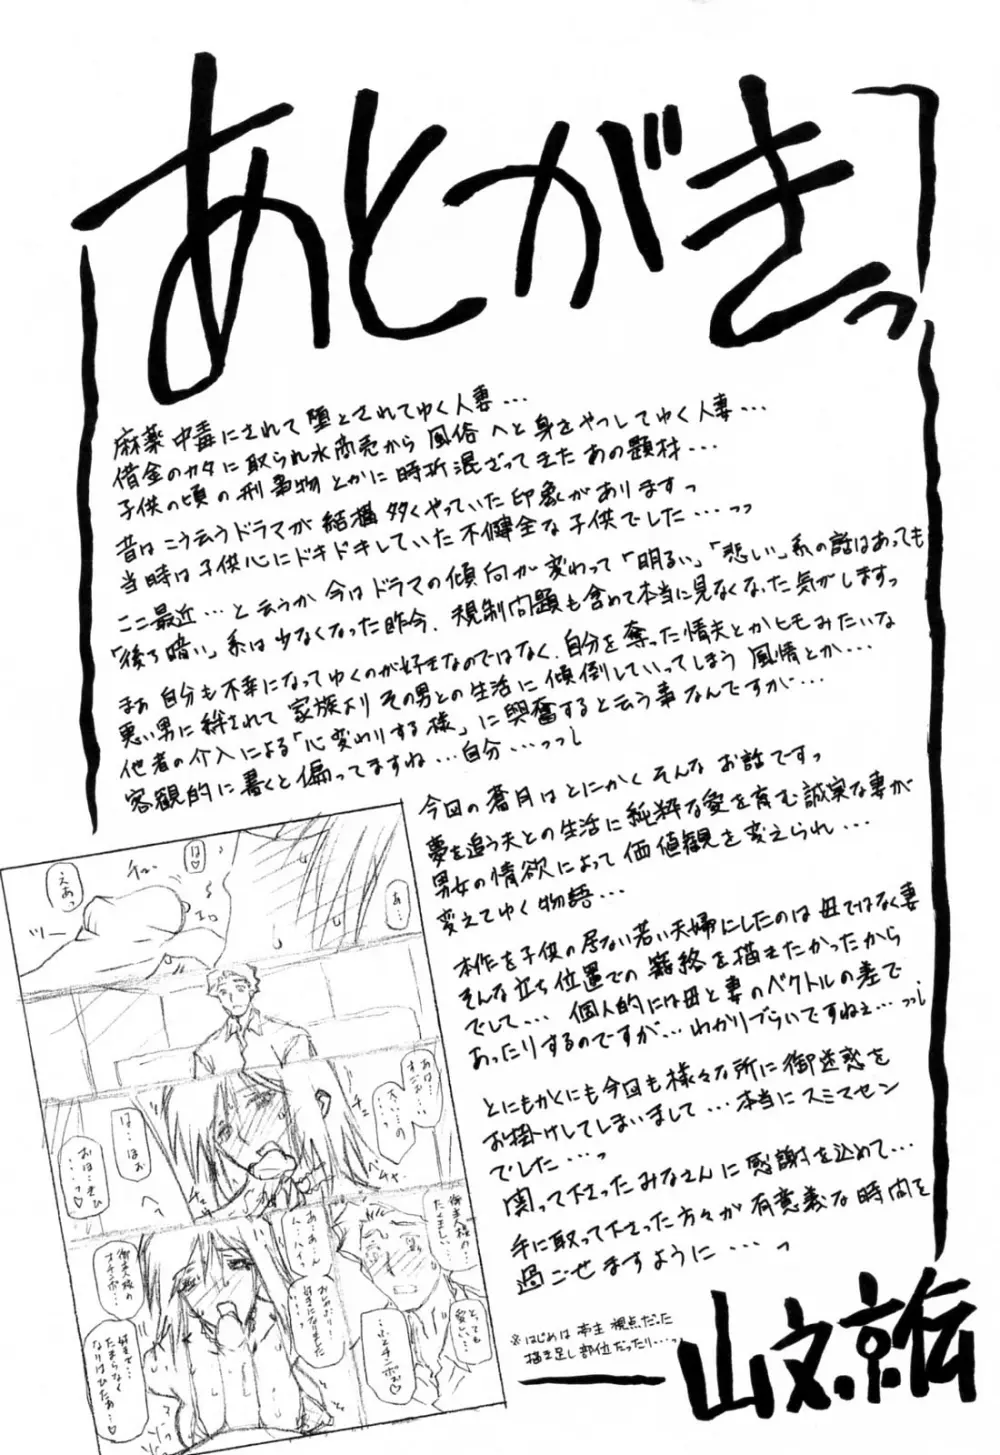 あとがきっ
麻薬中毒にされて堕とされてゆく人妻…
借金のカタに取られ水商売から風俗へと身をやつしてゆく人妻…
子供の頃の刑事物とかに時折混ざってきたあの題材…
昔はこう云うドラマが結構多くやっていた印象がありますっ
当時は子供心にドキドキしていた不健全な子供でした…っっ
ここ最近…と云うか今はドラマの傾向が変わって「明るい」「悲しい」系の話はあっても
「後ろ暗い」系は少なくなった昨今、規制問題も含めて本当に見なくなった気がしますっ
まぁ自分も不幸になってゆくのが好きなのではなく、自分を奪った情夫とかヒモみたいな
悪い男に絆されて家族よりその男との生活に傾倒していってしまう風情とか…
他者の介入による「心変わりする様」に興奮すると云う事なんですが…
客観的に書くと偏ってますね…自分…っっ
今回の蒼月はとにかくそんなお話ですっ
夢を追う夫との生活に純粋な愛を育む誠実な妻が
男女の情欲によって価値観を変えられ…
変えてゆく物語…
本作を子供の居ない若い夫婦にしたのは母ではなく妻
そんな立ち位置での籠絡を描きたかったから
でして…個人的には母と妻のベクトルの差で
あったりするのですが…わかりづらいですねぇ…っ
とにもかくにも今回も様々な所に御迷惑を
お掛けしてしまいまして…本当にスミマセン
でした…っ
関って下さったみなさんに感謝を込めて…
手に取って下さった方々が有意義な時間を
過ごせますように…っ
※はじめは亭主視点だった
描き足し部位だったり…っ
山文京伝
は♡
えあっ
あ…
ツー